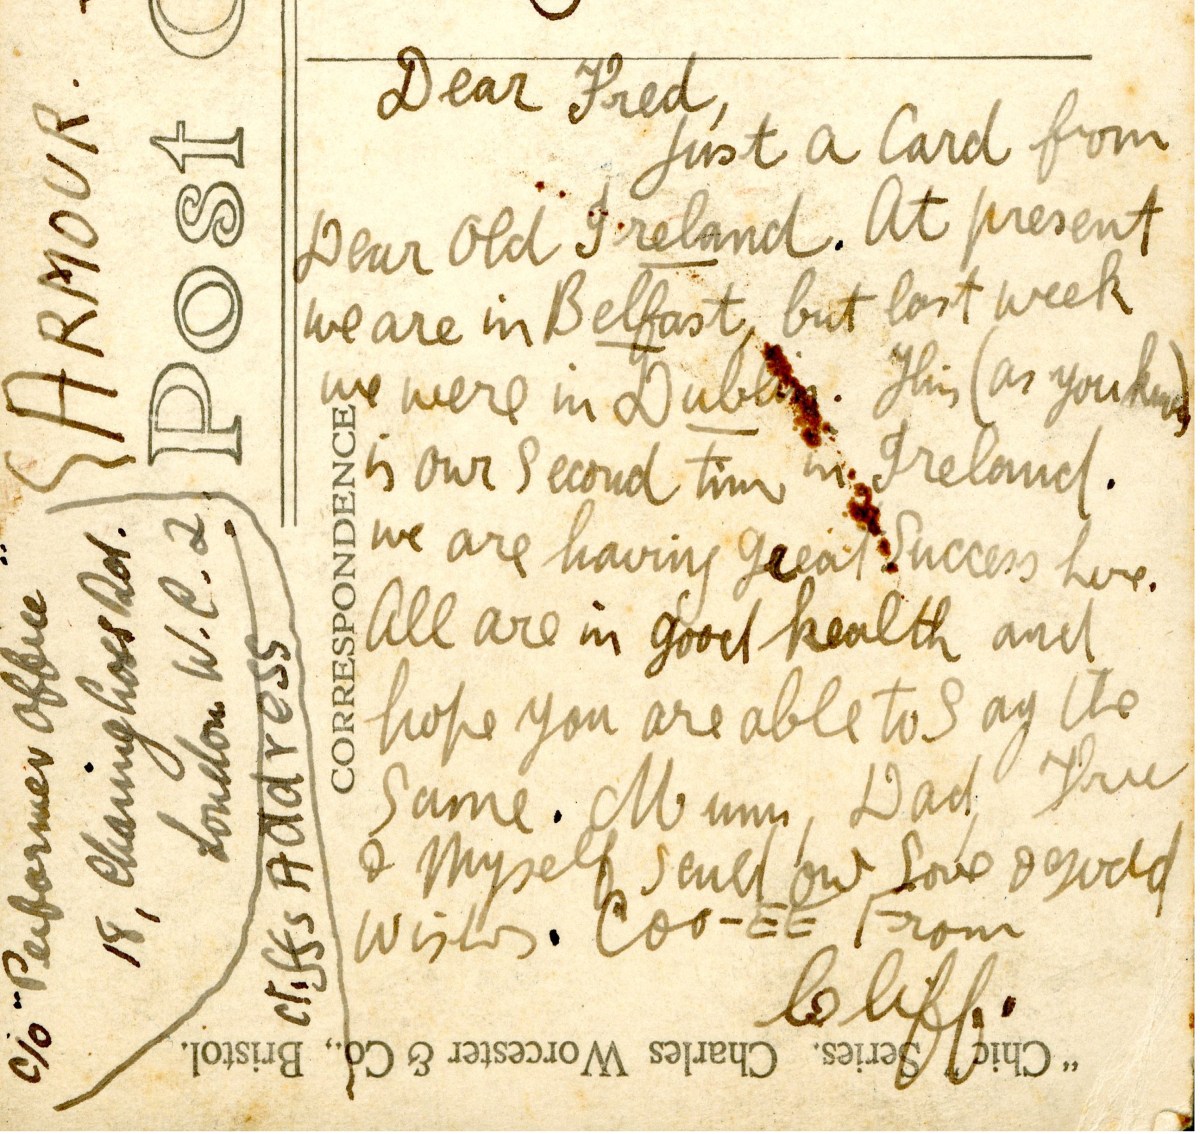 Dear Fred,
Just a Card from
Dear Old Ireland. At present
we are in Belfast, but last week
we were in Dublin. This (as you know)
is our Second time in Ireland.
we are having great Success here.
All are in good health and
hope you are able to Say the
Same. Mum, Dad,
& Myself Send our Love & good
Wishes. COO-EE From
Cliff.
CORRESPONDENCE
"Chic" Series. Charles Worcester & Co., Bristol.
Post C
ARMOUR.
c/o "Performer Office"
18, Charing Cross Rd.
London W.C.2
Cliffs Address